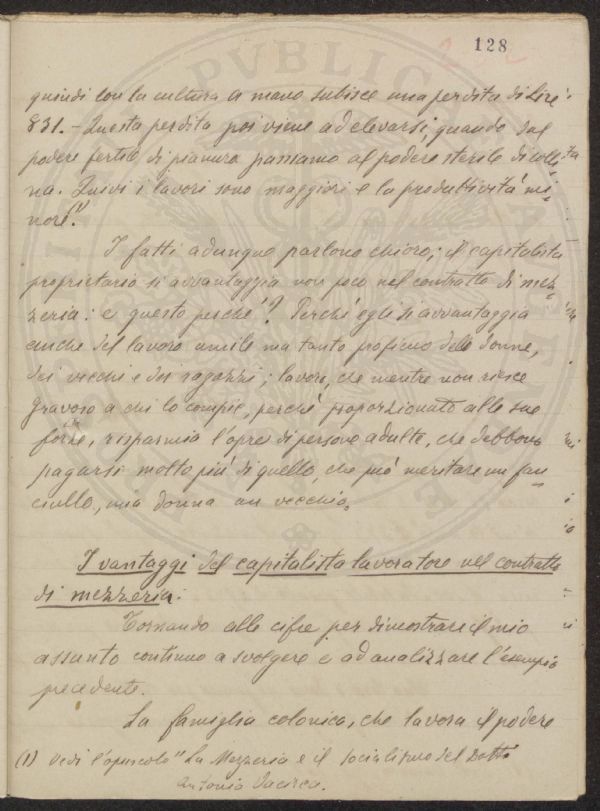 128
quindi con la cultura a mano subisce una perdita di Lire
831. - Questa perdita poi viene ad elevarsi, quando dal
podere fertile di pianura passiamo al podere sterile di colli-
na. Quivi i lavori sono maggiori e la produttività mi-
nore.(1)
I fatti adunque parlono chiaro; il capitalista
proprietario si avvantaggia non poco nel contratto di mez-
zeria: e questo perché? Perché egli si avvantaggia
anche del lavoro umile ma tanto proficuo delle donne,
dei vecchi e dei ragazzi; lavoro, che mentre non riesce
gravoso a chi lo compie, perché proporzionato alle sue
forze, risparmia l'opre di persone adulte, che debbono
pagarsi molto più di quello, che può meritare un fan-
ciullo, una donna o un vecchio.
I vantaggi del capitalista lavoratore nel contratto
di mezzeria.
Tornando alle cifre per dimostrare il mio
assunto continuo a svolgere e ad analizzare l'esempio
precedente.
La famiglia colonica, che lavora il podere
(1) Vedi l'opuscolo "La Mezzeria e il socialismo del Dott.
Antonio